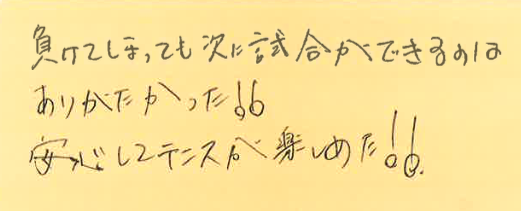 負けてしまっても次に試合ができるのは
ありがたかった!!
安心してテニスが楽しめた!!